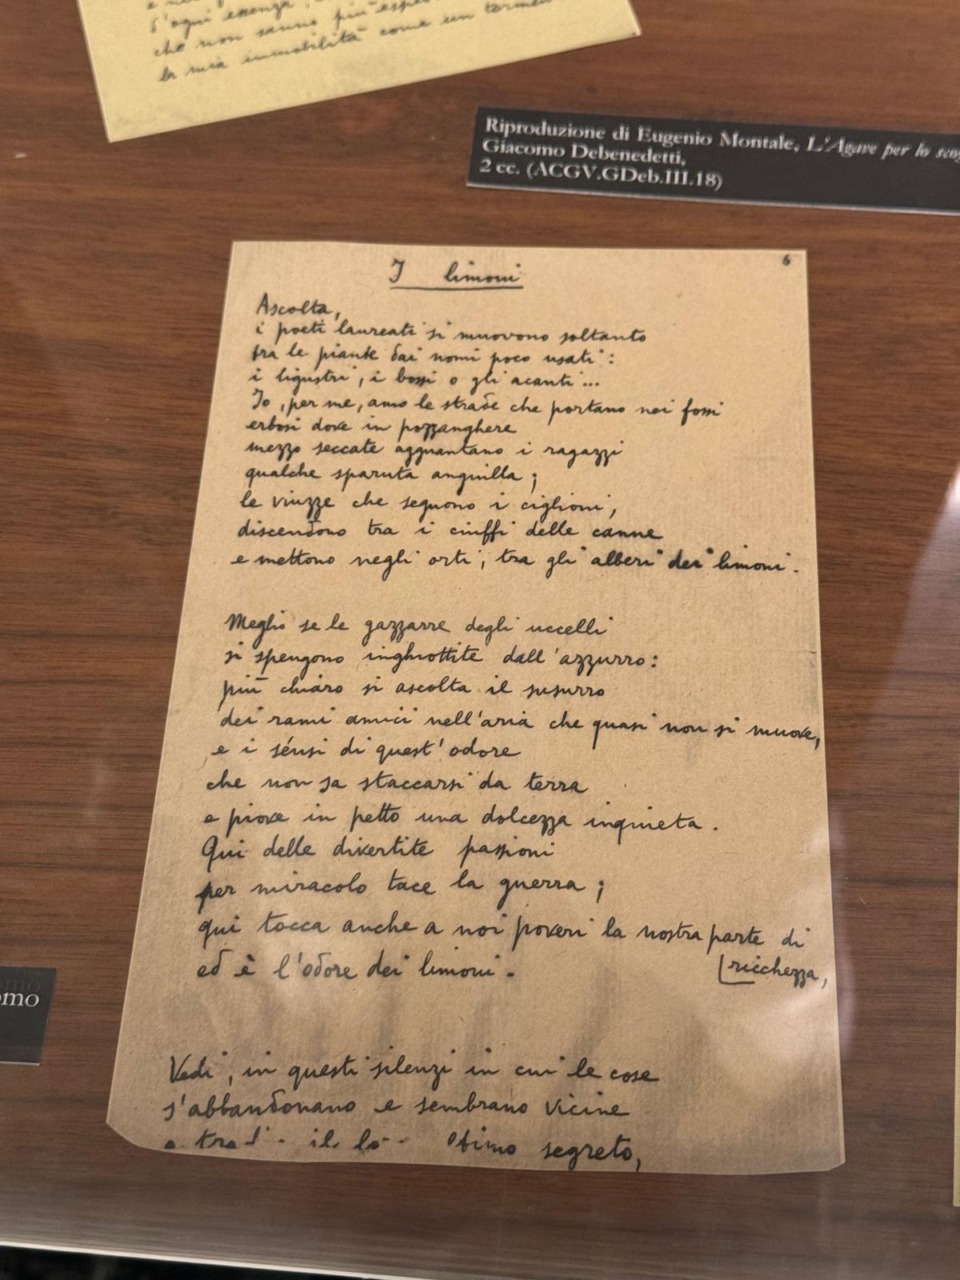 d'ogni essenza,
che non sanno più
la mia immobilità come un
Riproduzione di Eugenio Montale, L'Agave per lo
Giacomo Debenedetti,
2 cc. (ACGV.GDeb.III.18)
6
I limoni
Ascolta,
i poeti laureati si muovono soltanto
fra le piante dai nomi poco usati:
i ligustri, i bossi o gli acanti...
Io, per me, amo le strade che portano nei fossi
erbosi dove in pozzanghere
mezzo seccate agguantano i ragazzi
qualche sparuta anguilla;
le viuzze che seguono i ciglioni,
discendono tra i ciuffi delle canne
e mettono negli orti, tra gli alberi dei limoni.
Meglio se le gazzarre degli uccelli
si spengono inghiottite dall'azzurro:
più chiaro si ascolta il susurro
dei rami amici nell'aria che quasi non si muove,
e i sènsi di quest'odore
che non sa staccarsi da terra
e piove in petto una dolcezza inquieta.
Qui delle divertite passioni
per miracolo tace la guerra;
qui tocca anche a noi poveri la nostra parte di
ricchezza,
ed è l'odore dei limoni.
omo
Vedi, in questi silenzi in cui le cose
s'abbandonano e sembrano vicine
il segreto,